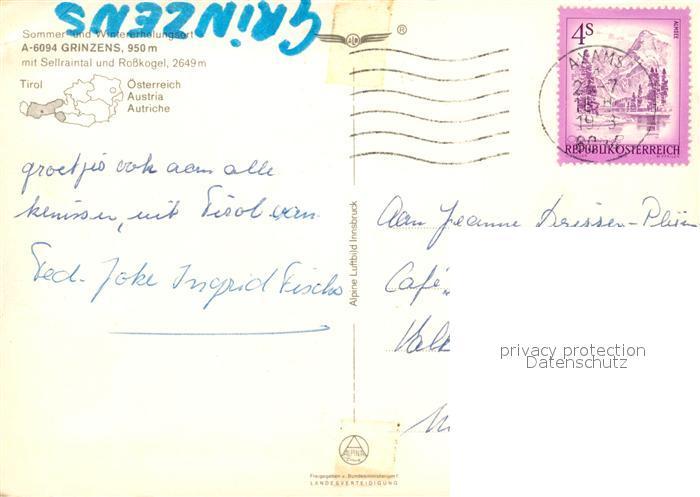 GRINZENS
Sommer- und Wintererholungsort
A-6094 GRINZENS, 950 m
mit Sellraintal und Roßkogel, 2649 m
Tirol
Österreich
Austria
Autriche
groetjes ook aan alle
kenissen, uit Tirol van
Ted. Joke Ingrid
Alpine Luftbild Innsbruck
ALPINE
Freigegeben v. Bundesministerium f.
LANDESVERTEIDIGUNG
4S
ALMSEE
REPUBLIK ÖSTERREICH
AXAMS
Aan Jeanne
Café
privacy protection
Datenschutz